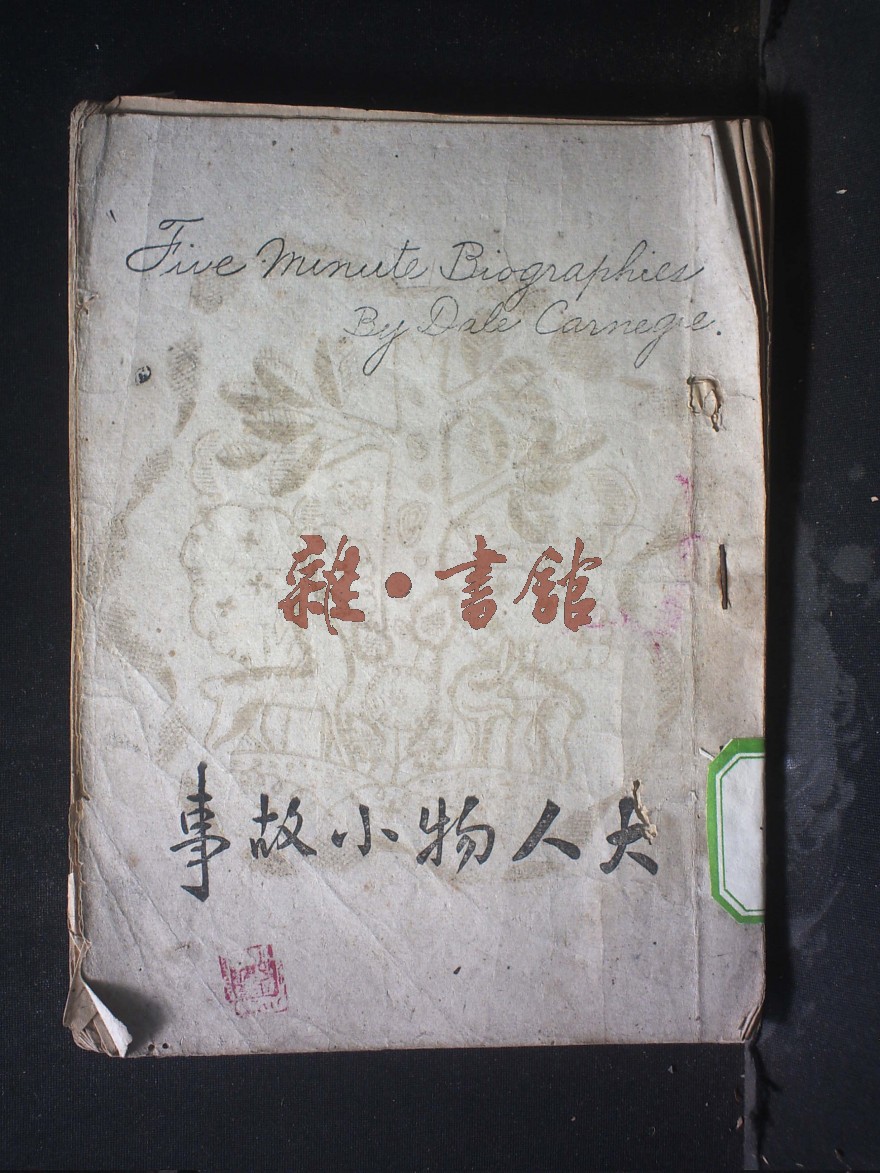 Five Minute Biographies
By Dale Carnegie.
雜·書館
大人物小故事